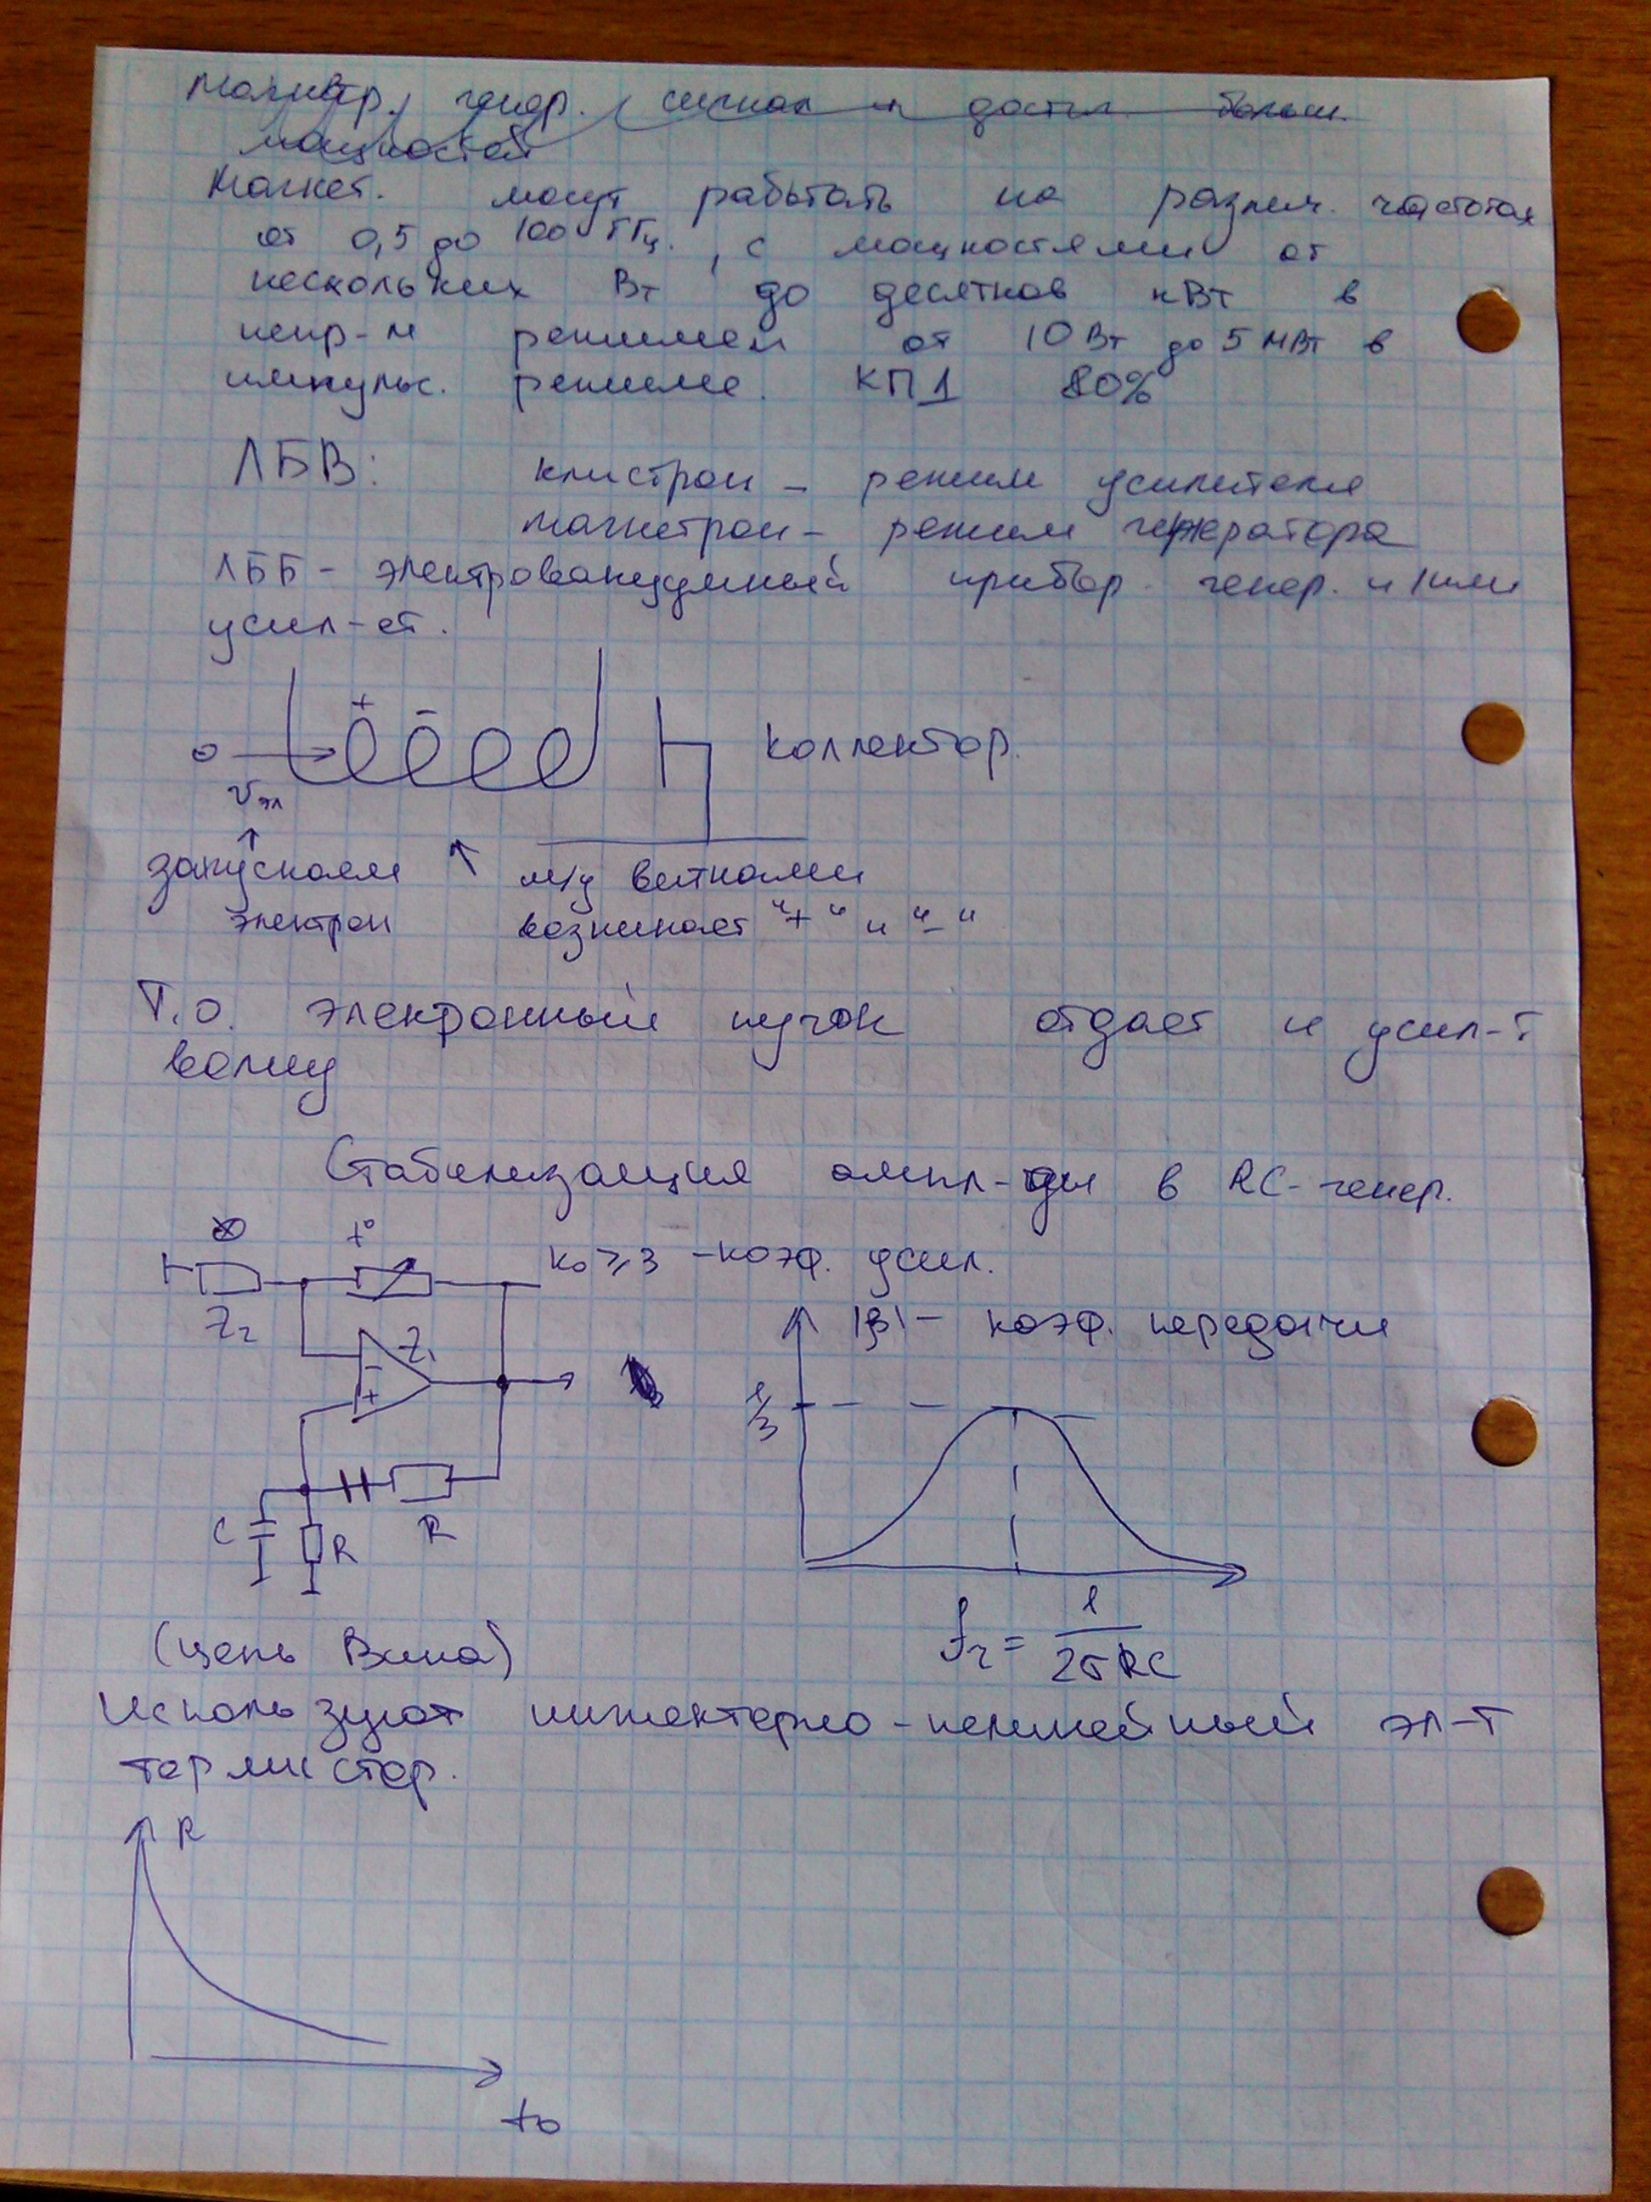 генер. сигнал и достиг. больш.
мощностей
Магнет. могут работать на различ. частотах
от 0,5 до 100 ГГц. , с мощностями от
нескольких Вт до десятков кВт в
непр-м режимеи от 10 Вт до 5 МВт в
импульс. режиме. КПД 80%
ЛБВ: клистрон - режим усилителя
магнетрон - режим генератора
ЛББ - электровакуумный прибор генер. и/или
усил-ет.
+ -
коллектор.
Vэл
запускаем м/у витками
электрон возникает "+" и "-"
Т.о. элекронный пучок отдает и усил-т
волну
Стабилизация ампл-ды в RC-генер.
t°
k₀ ⩾ 3 - коэф. усил.
Z₂ |β| - коэф. передачи
Z₁
-
+
1/3
C R R
fг = 1/2πRC
(цепь Вина)
Используют инжектерно-нелинейный эл-т
термистор.
R
t°